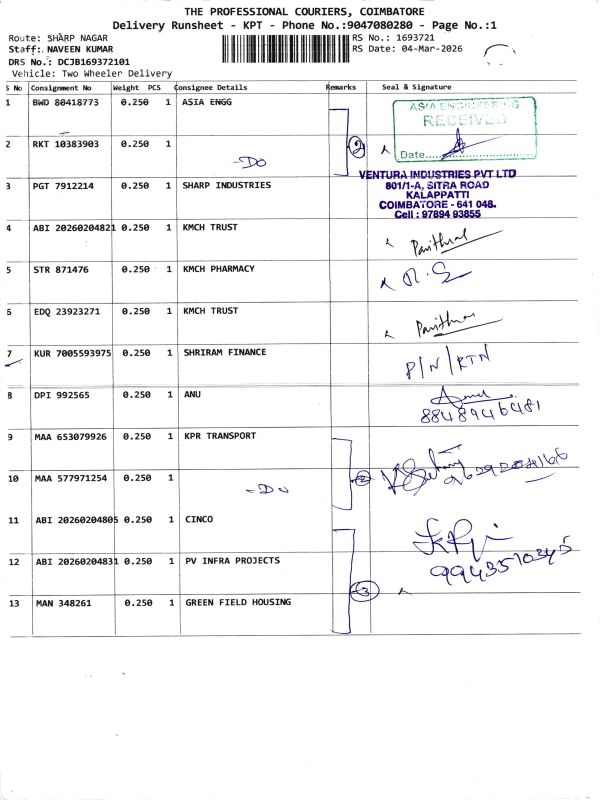 THE PROFESSIONAL COURIERS, COIMBATORE
Delivery Runsheet - KPT - Phone No.:9047080280 - Page No.:1
Route: SHARP NAGAR
RS No.: 1693721
Staff: NAVEEN KUMAR
RS Date: 04-Mar-2026
DRS No.: DCJB169372101
Vehicle: Two Wheeler Delivery
S No Consignment No Weight PCS Consignee Details Remarks Seal & Signature
1 BWD 80418773 0.250 1 ASIA ENGG
ASIA ENGINEERING
RECEIVED
Date
2 RKT 10383903 0.250 1
-DO
2
3 PGT 7912214 0.250 1 SHARP INDUSTRIES
VENTURA INDUSTRIES PVT LTD
801/1-A, SITRA ROAD
KALAPPATTI
COIMBATORE - 641 048.
Cell : 97894 93855
4 ABI 20260204821 0.250 1 KMCH TRUST
5 STR 871476 0.250 1 KMCH PHARMACY
6 EDQ 23923271 0.250 1 KMCH TRUST
7 KUR 7005593975 0.250 1 SHRIRAM FINANCE
P/N/RTN
8 DPI 992565 0.250 1 ANU
8848946481
9 MAA 653079926 0.250 1 KPR TRANSPORT
10 MAA 577971254 0.250 1
-DO
2
11 ABI 20260204805 0.250 1 CINCO
12 ABI 20260204831 0.250 1 PV INFRA PROJECTS
9943570345
3
13 MAN 348261 0.250 1 GREEN FIELD HOUSING